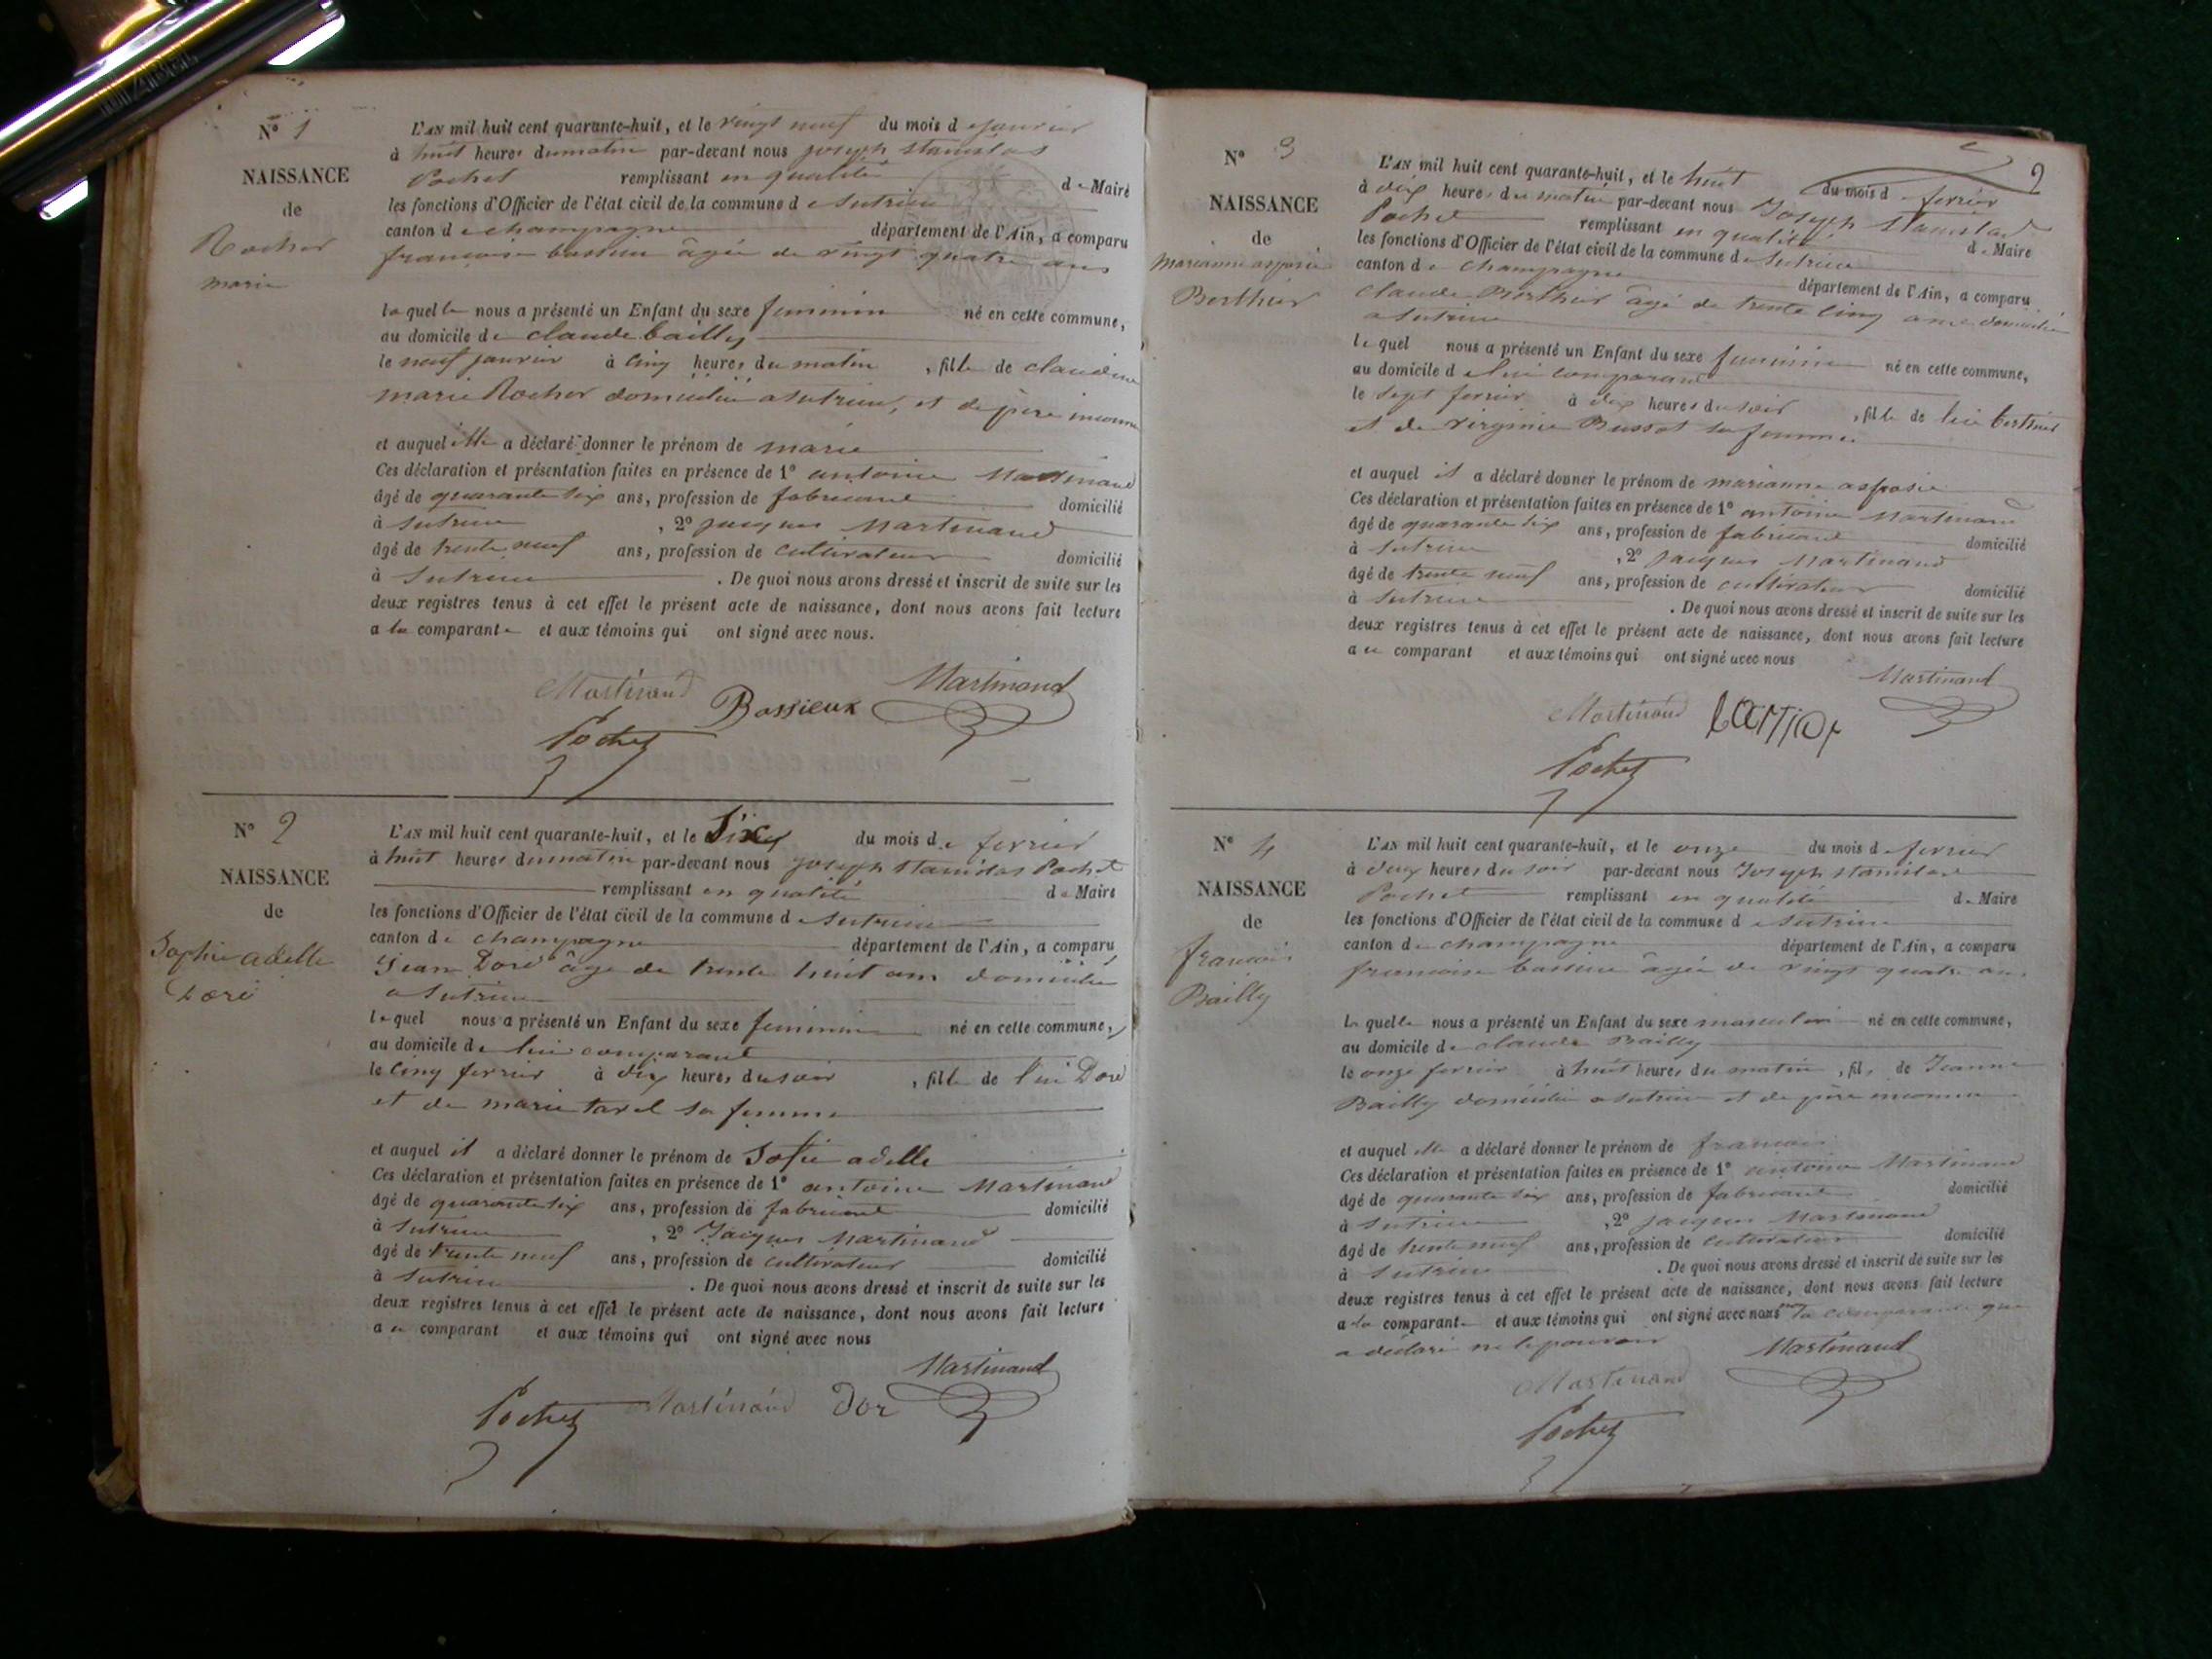 N° 1
NAISSANCE
de
Rocher
marie
L'AN mil huit cent quarante-huit, et le vingt neuf du mois de janvier
à huit heures du matin par-devant nous joseph stanislas
Pochet remplissant en qualité de Maire
les fonctions d'Officier de l'état civil de la commune de Sutrieu
canton de champagne département de l'Ain, a comparu
francoise bassieu âgée de vingt quatre ans
laquelle nous a présenté un Enfant du sexe feminin né en cette commune,
au domicile de claude bailly
le neuf janvier à cinq heures du matin, fille de claudine
marie Rocher domiciliée a sutrieu, et de père inconnu
et auquel elle a déclaré donner le prénom de marie
Ces déclaration et présentation faites en présence de 1° antoine Martinand
âgé de quarante six ans, profession de fabricant domicilié
à Sutrieu, 2° jacques Martinand
âgé de trente neuf ans, profession de cultivateur domicilié
à Sutrieu. De quoi nous avons dressé et inscrit de suite sur les
deux registres tenus à cet effet le présent acte de naissance, dont nous avons fait lecture
a la comparante et aux témoins qui ont signé avec nous.
Martinand Bassieux Martinand
Pochet
N° 2
NAISSANCE
de
Sophie adelle
Doré
L'AN mil huit cent quarante-huit, et le Six du mois de fevrier
à huit heures du matin par-devant nous joseph stanislas Pochet
remplissant en qualité de Maire
les fonctions d'Officier de l'état civil de la commune de Sutrieu
canton de champagne département de l'Ain, a comparu
Jean Doré âgé de trente huit ans domicilié
a Sutrieu
lequel nous a présenté un Enfant du sexe feminin né en cette commune,
au domicile de lui comparant
le cinq fevrier à dix heures du soir, fille de lui Doré
et de marie tavel sa femme
et auquel il a déclaré donner le prénom de Sofie adelle
Ces déclaration et présentation faites en présence de 1° antoine Martinand
âgé de quarante six ans, profession de fabricant domicilié
à Sutrieu, 2° Jacques Martinand
âgé de trente neuf ans, profession de cultivateur domicilié
à Sutrieu. De quoi nous avons dressé et inscrit de suite sur les
deux registres tenus à cet effet le présent acte de naissance, dont nous avons fait lecture
au comparant et aux témoins qui ont signé avec nous
Martinand
Pochet Martinand Dor
2
N° 3
NAISSANCE
de
marianne aspasie
Berthier
L'AN mil huit cent quarante-huit, et le huit du mois de fevrier
à dix heures du matin par-devant nous Joseph stanislas
Pochet remplissant en qualité de Maire
les fonctions d'Officier de l'état civil de la commune de Sutrieu
canton de champagne département de l'Ain, a comparu
Claude Berthier âgé de trente cinq ans domicilié
a Sutrieu
lequel nous a présenté un Enfant du sexe feminin né en cette commune,
au domicile de lui comparant
le sept fevrier à dix heures du soir, fille de lui bertier
et de virginie Bussot sa femme
et auquel il a déclaré donner le prénom de marianne aspasie
Ces déclaration et présentation faites en présence de 1° antoine Martinand
âgé de quarante six ans, profession de fabricant domicilié
à Sutrieu, 2° jacques Martinand
âgé de trente neuf ans, profession de cultivateur domicilié
à Sutrieu. De quoi nous avons dressé et inscrit de suite sur les
deux registres tenus à cet effet le présent acte de naissance, dont nous avons fait lecture
au comparant et aux témoins qui ont signé avec nous
Martinand
Martinand
Pochet
N° 4
NAISSANCE
de
francois
Bailly
L'AN mil huit cent quarante-huit, et le onze du mois de fevrier
à deux heures du soir par-devant nous Joseph stanislas
Pochet remplissant en qualité de Maire
les fonctions d'Officier de l'état civil de la commune de Sutrieu
canton de champagne département de l'Ain, a comparu
francoise bassieu âgée de vingt quatre ans
laquelle nous a présenté un Enfant du sexe masculin né en cette commune,
au domicile de claude Bailly
le onze fevrier à huit heures du matin, fils de Jeanne
Bailly domiciliée a sutrieu et de père inconnu
et auquel elle a déclaré donner le prénom de francois
Ces déclaration et présentation faites en présence de 1° antoine Martinand
âgé de quarante six ans, profession de fabricant domicilié
à Sutrieu, 2° jacques Martinand
âgé de trente neuf ans, profession de cultivateur domicilié
à Sutrieu. De quoi nous avons dressé et inscrit de suite sur les
deux registres tenus à cet effet le présent acte de naissance, dont nous avons fait lecture
a la comparante et aux témoins qui ont signé avec nous non la comparante qui
a déclaré ne le pouvoir
Martinand
Martinand
Pochet